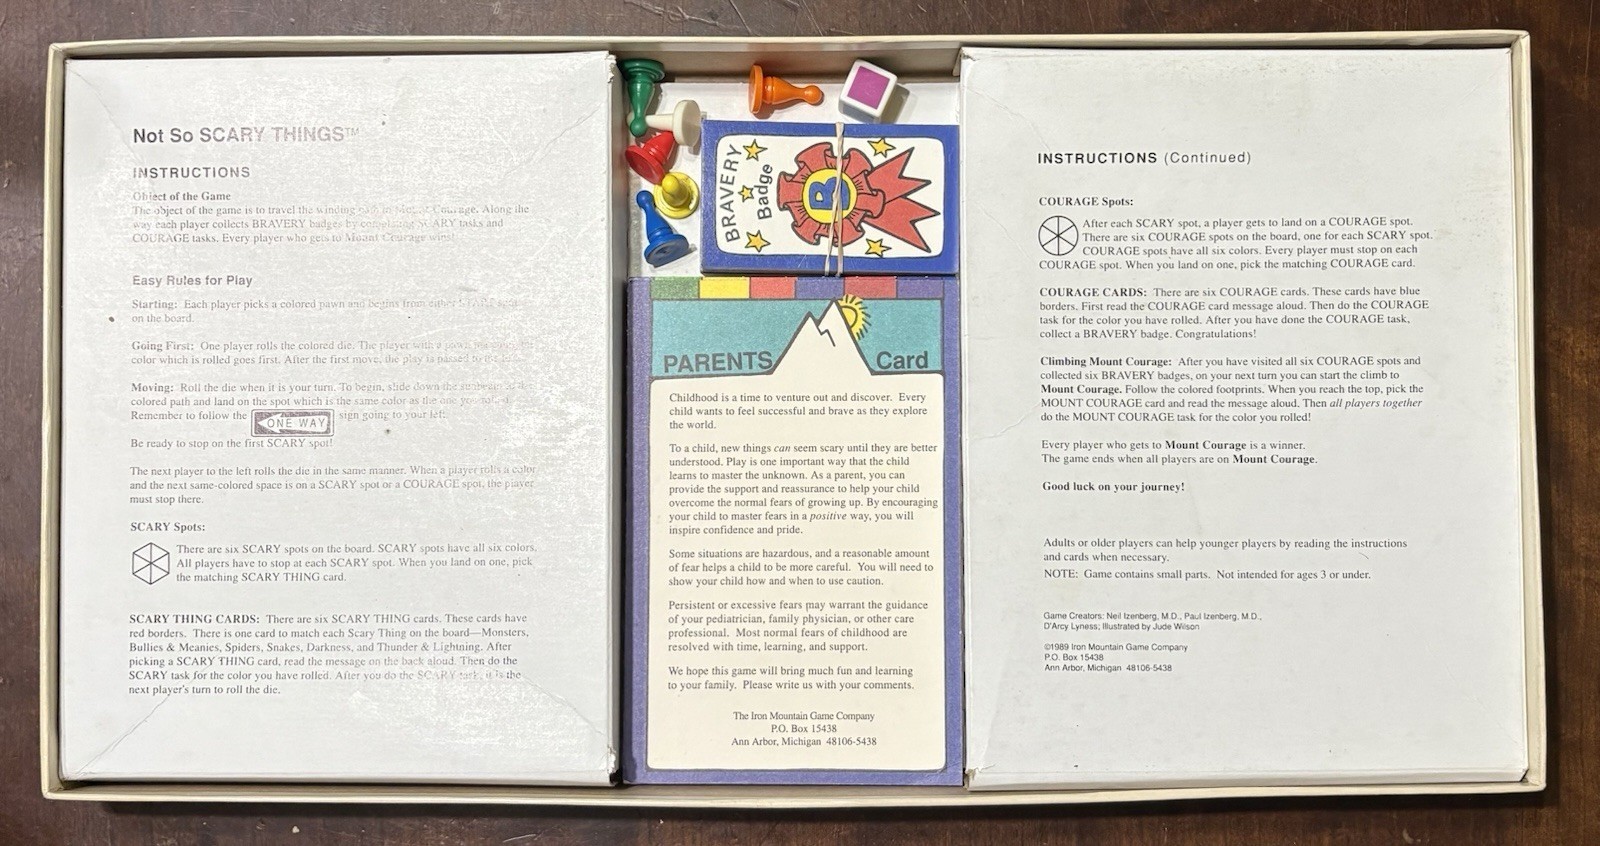 Not So SCARY THINGS™
INSTRUCTIONS
Object of the Game
The object of the game is to travel the winding path to Mount Courage. Along the
way each player collects BRAVERY badges by completing SCARY tasks and
COURAGE tasks. Every player who gets to Mount Courage wins!
Easy Rules for Play
Starting: Each player picks a colored pawn and begins from either START
on the board.
Going First: One player rolls the colored die. The player with a pawn
color which is rolled goes first. After the first move, the play is passed to the
Moving: Roll the die when it is your turn. To begin, slide down the sunbeam
colored path and land on the spot which is the same color as the one you rolled.
Remember to follow the ONE WAY sign going to your left.
Be ready to stop on the first SCARY spot!
The next player to the left rolls the die in the same manner. When a player rolls a color
and the next same-colored space is on a SCARY spot or a COURAGE spot, the player
must stop there.
SCARY Spots:
There are six SCARY spots on the board. SCARY spots have all six colors.
All players have to stop at each SCARY spot. When you land on one, pick
the matching SCARY THING card.
SCARY THING CARDS: There are six SCARY THING cards. These cards have
red borders. There is one card to match each Scary Thing on the board—Monsters,
Bullies & Meanies, Spiders, Snakes, Darkness, and Thunder & Lightning. After
picking a SCARY THING card, read the message on the back aloud. Then do the
SCARY task for the color you have rolled. After you do the SCARY task, it is the
next player's turn to roll the die.
BRAVERY
Badge
B
PARENTS Card
Childhood is a time to venture out and discover. Every
child wants to feel successful and brave as they explore
the world.
To a child, new things can seem scary until they are better
understood. Play is one important way that the child
learns to master the unknown. As a parent, you can
provide the support and reassurance to help your child
overcome the normal fears of growing up. By encouraging
your child to master fears in a positive way, you will
inspire confidence and pride.
Some situations are hazardous, and a reasonable amount
of fear helps a child to be more careful. You will need to
show your child how and when to use caution.
Persistent or excessive fears may warrant the guidance
of your pediatrician, family physician, or other care
professional. Most normal fears of childhood are
resolved with time, learning, and support.
We hope this game will bring much fun and learning
to your family. Please write us with your comments.
The Iron Mountain Game Company
P.O. Box 15438
Ann Arbor, Michigan 48106-5438
INSTRUCTIONS (Continued)
COURAGE Spots:
After each SCARY spot, a player gets to land on a COURAGE spot.
There are six COURAGE spots on the board, one for each SCARY spot.
COURAGE spots have all six colors. Every player must stop on each
COURAGE spot. When you land on one, pick the matching COURAGE card.
COURAGE CARDS: There are six COURAGE cards. These cards have blue
borders. First read the COURAGE card message aloud. Then do the COURAGE
task for the color you have rolled. After you have done the COURAGE task,
collect a BRAVERY badge. Congratulations!
Climbing Mount Courage: After you have visited all six COURAGE spots and
collected six BRAVERY badges, on your next turn you can start the climb to
Mount Courage. Follow the colored footprints. When you reach the top, pick the
MOUNT COURAGE card and read the message aloud. Then all players together
do the MOUNT COURAGE task for the color you rolled!
Every player who gets to Mount Courage is a winner.
The game ends when all players are on Mount Courage.
Good luck on your journey!
Adults or older players can help younger players by reading the instructions
and cards when necessary.
NOTE: Game contains small parts. Not intended for ages 3 or under.
Game Creators: Neil Izenberg, M.D., Paul Izenberg, M.D.,
D'Arcy Lyness; Illustrated by Jude Wilson
©1989 Iron Mountain Game Company
P.O. Box 15438
Ann Arbor, Michigan 48106-5438